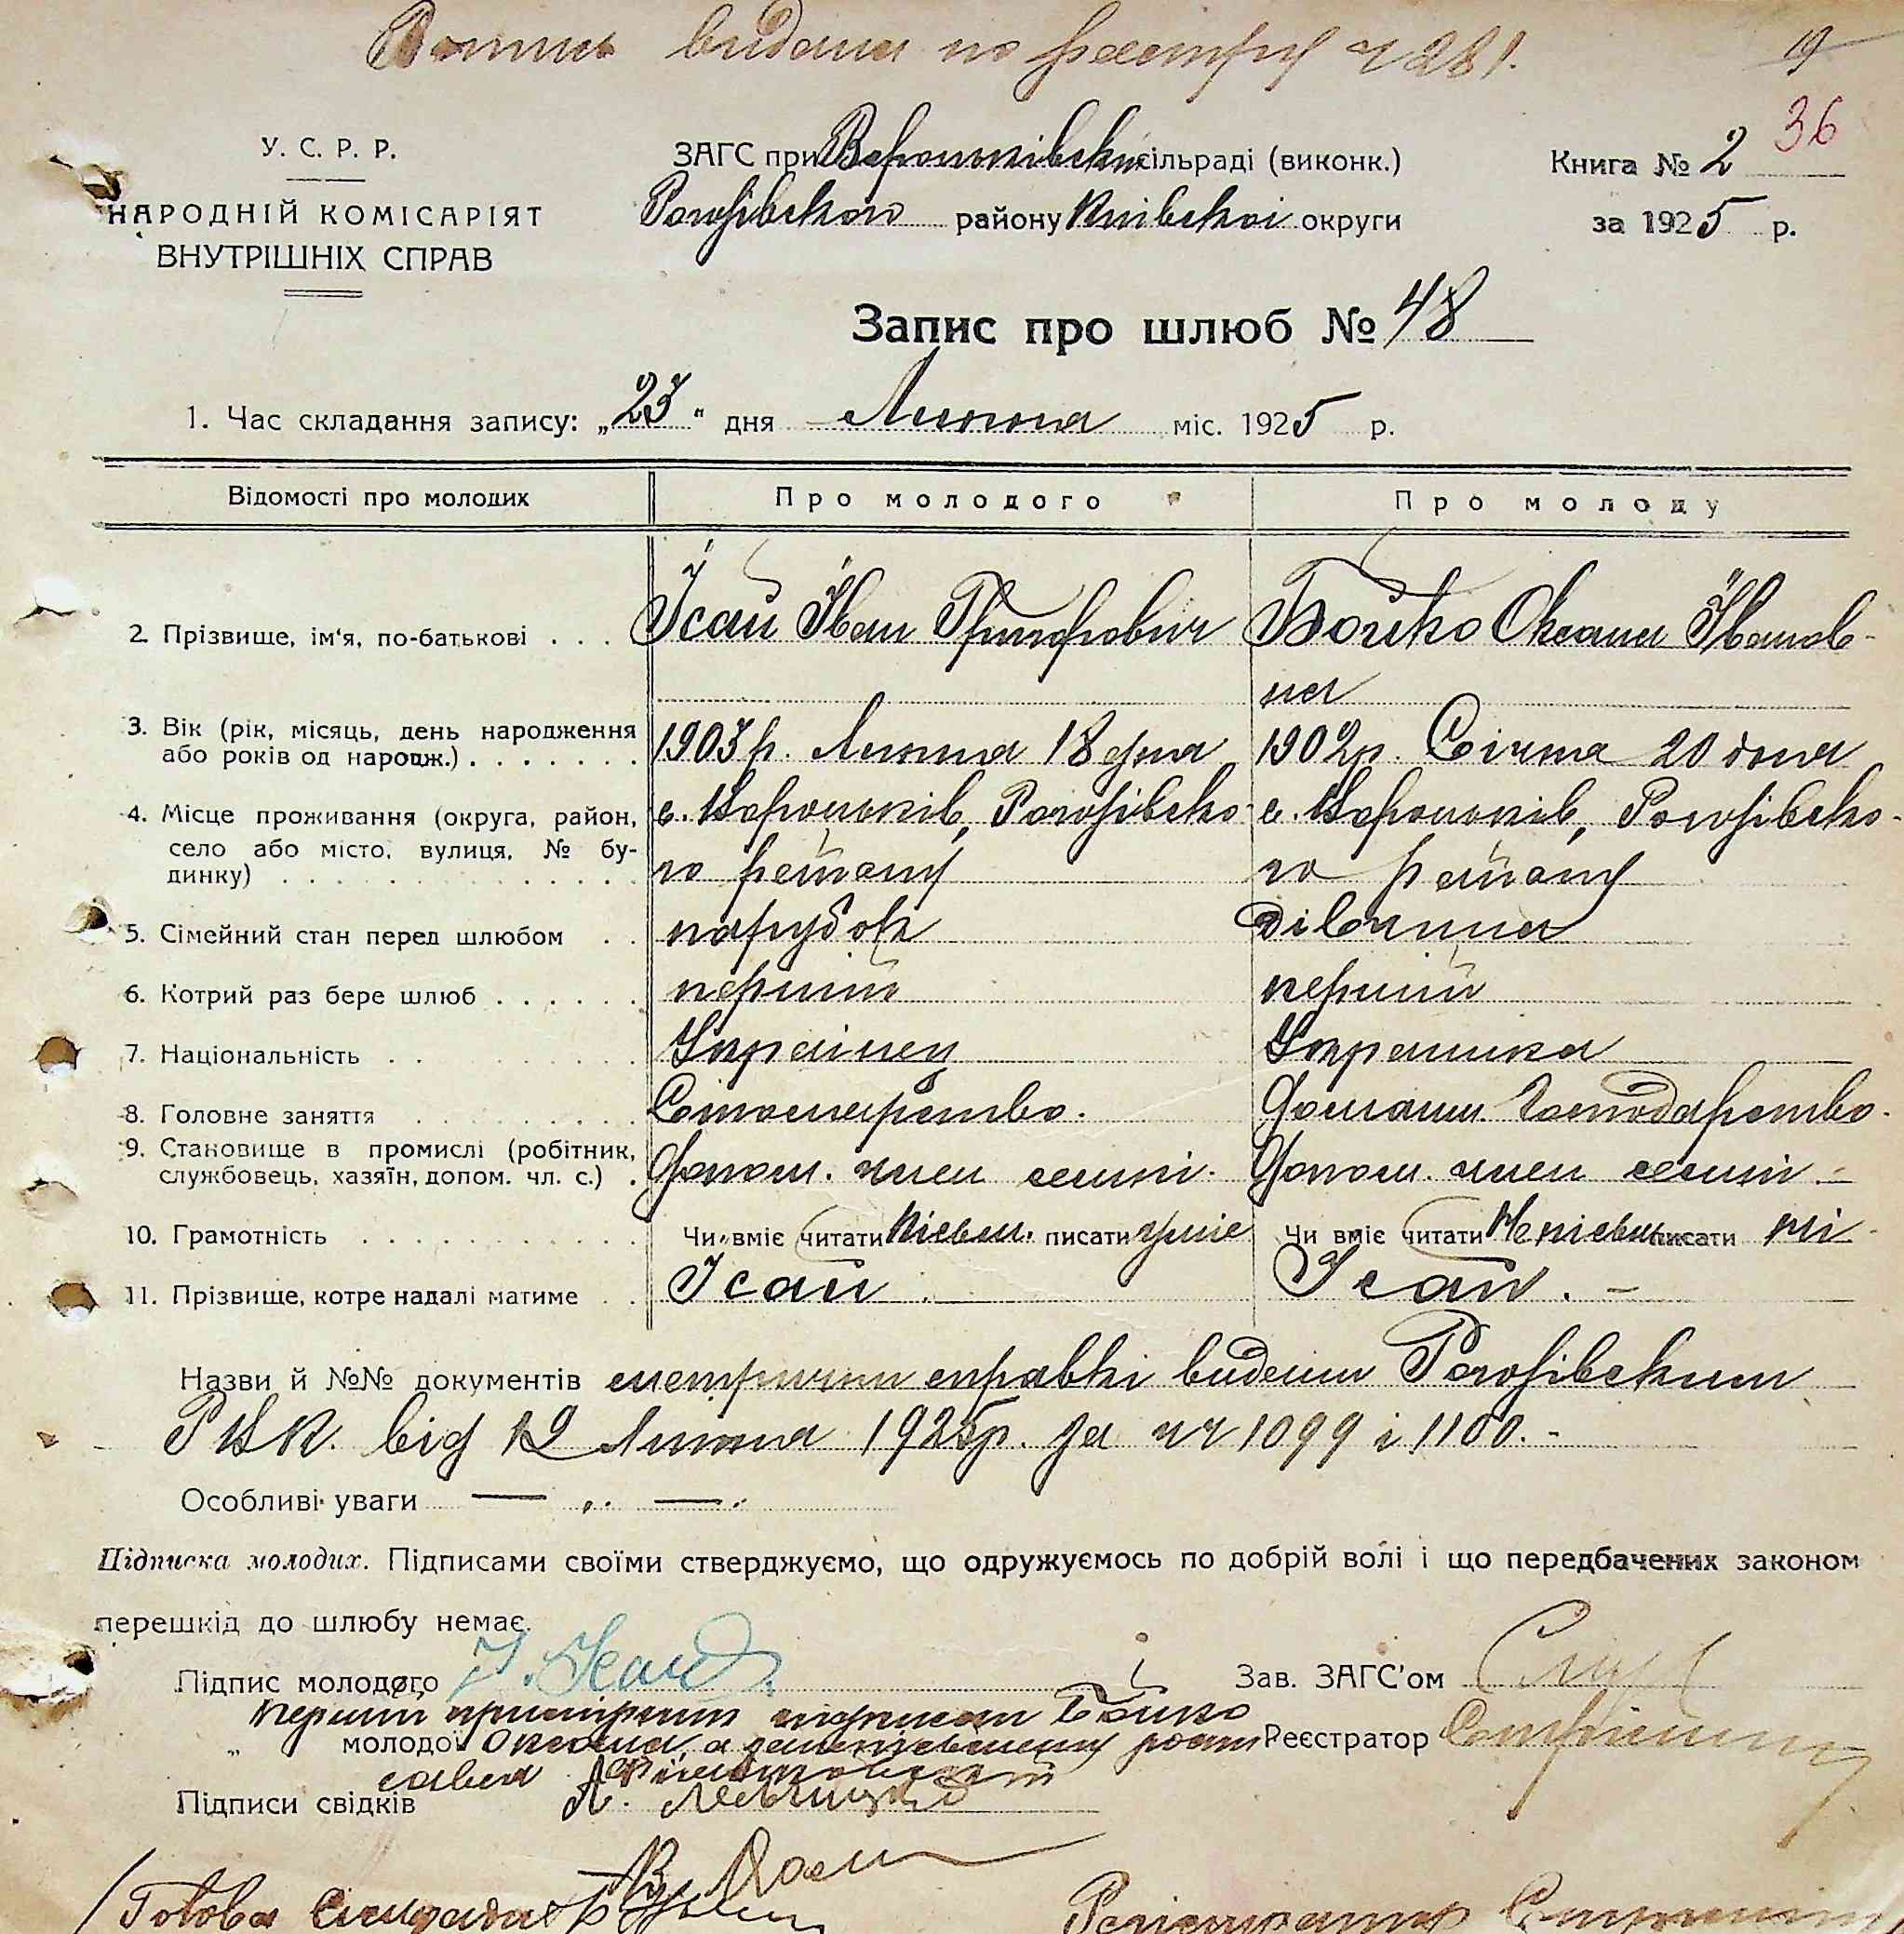 видана по реєстру ч 281. 19
36
У. С. Р. Р.
НАРОДНІЙ КОМІСАРІЯТ
ВНУТРІШНІХ СПРАВ
ЗАГС при Вороньківській сільраді (виконк.)
Рогозівського району Київської округи
Книга № 2
за 1925 р.
Запис про шлюб № 48
1. Час складання запису: „23" дня Липня міс. 1925 р.
Відомості про молодих Про молодого Про молоду
2. Прізвище, ім'я, по-батькові . . . Ісай Іван Григорович Бойко Оксана Іванов-
на
3. Вік (рік, місяць, день народження
або років од народж.) . . . . . . . 1903 р. Липня 18 дня 1902 р. Січня 20 дня
4. Місце проживання (округа, район,
село або місто, вулиця, № бу-
динку) . . . с. Вороньків, Рогозівсько-
го району с. Вороньків, Рогозівсько-
го району
5. Сімейний стан перед шлюбом . . парубок дівчина
6. Котрий раз бере шлюб . . . . . . перший перший
7. Національність . . Українец Українка
8. Головне заняття Сільськ. Домашн. господарство.
9. Становище в промислі (робітник,
службовець, хазяїн, допом. чл. с.) . Допом. член семьї. Допом. член семьї. -
10. Грамотність . . . Чи вміє читати писати уміє Чи вміє читати писати ні
11. Прізвище, котре надалі матиме . . Ісай. Ісай. -
Назви й №№ документів справкі видани Рогозівським
РВК. від 12 Липня 1925 р. за чч 1099 і 1100. -
Особливі уваги — „. — „.
Підписка молодих. Підписами своїми стверджуємо, що одружуємось по добрій волі і що передбачених законом
перешкід до шлюбу немає.
Підпис молодого І. Ісай
Зав. ЗАГС'ом
Бойко
„ молодої Оксана, а
Реєстратор
Підписи свідків
Голова Сільради
Реєстратор